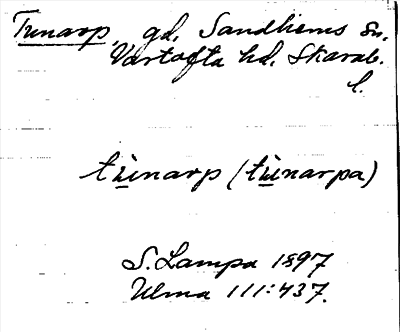 Tunarp, gd, Sandhems sn,
Vartofta hd, Skarab.
l.
tùnarp (tùnarpa)
S. Lampa 1897
Ulma 111:437.